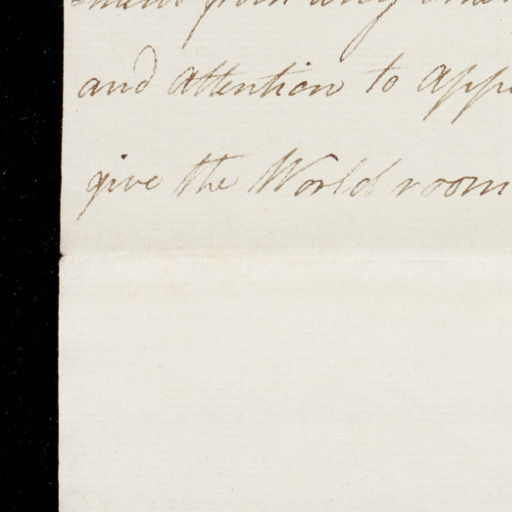 from any
and attention to app
give the World room